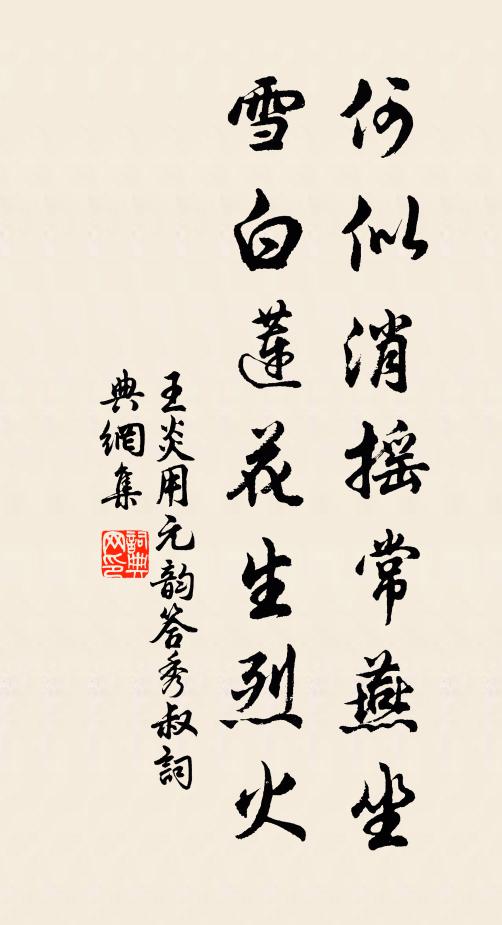 何似消摇常燕坐
雪白莲花生烈火
王炎用元韵答秀叔詞
典網集
詞典
网印